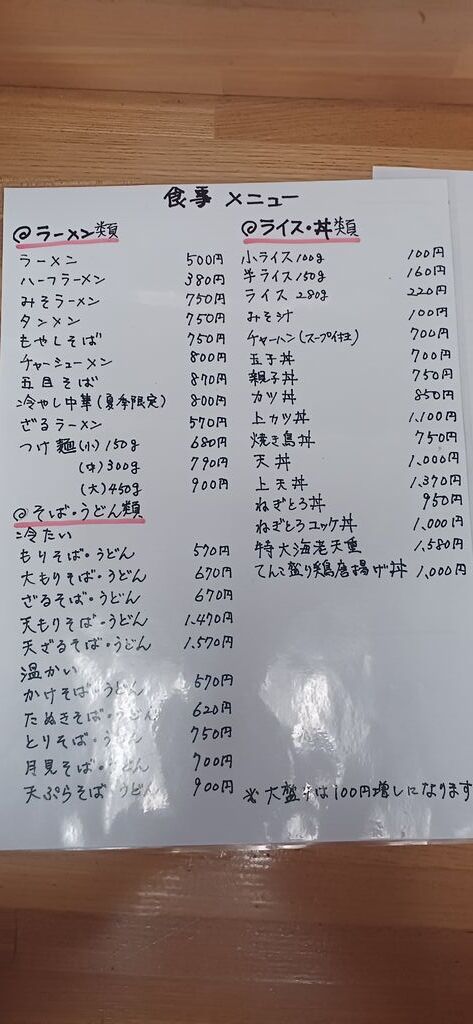 食事 メニュー
@ラーメン類
ラーメン 500円
ハーフラーメン 380円
みそラーメン 750円
タンメン 750円
もやしそば 750円
チャーシューメン 800円
五目そば 870円
冷やし中華(夏季限定) 800円
ざるラーメン 570円
つけ麺(小)150g 680円
(中)300g 790円
(大)450g 900円
@そば・うどん類
冷たい
もりそば・うどん 570円
大もりそば・うどん 670円
ざるそば・うどん 670円
天もりそば・うどん 1.470円
天ざるそば・うどん 1.570円
温かい
かけそば・うどん 570円
たぬきそば・うどん 620円
とりそば・うどん 750円
月見そば・うどん 700円
天ぷらそば・うどん 900円
@ライス・丼類
小ライス100g 100円
半ライス150g 160円
ライス 280g 220円
みそ汁 100円
チャーハン(スープ付) 700円
玉子丼 700円
親子丼 750円
カツ丼 850円
上カツ丼 1.100円
焼き鳥丼 750円
天丼 1.000円
上天丼 1.370円
ねぎとろ丼 950円
ねぎとろユッケ丼 1.000円
特大海老天重 1.580円
てんこ盛り鶏唐揚げ丼 1.000円
※ 大盛りは100円増しになります